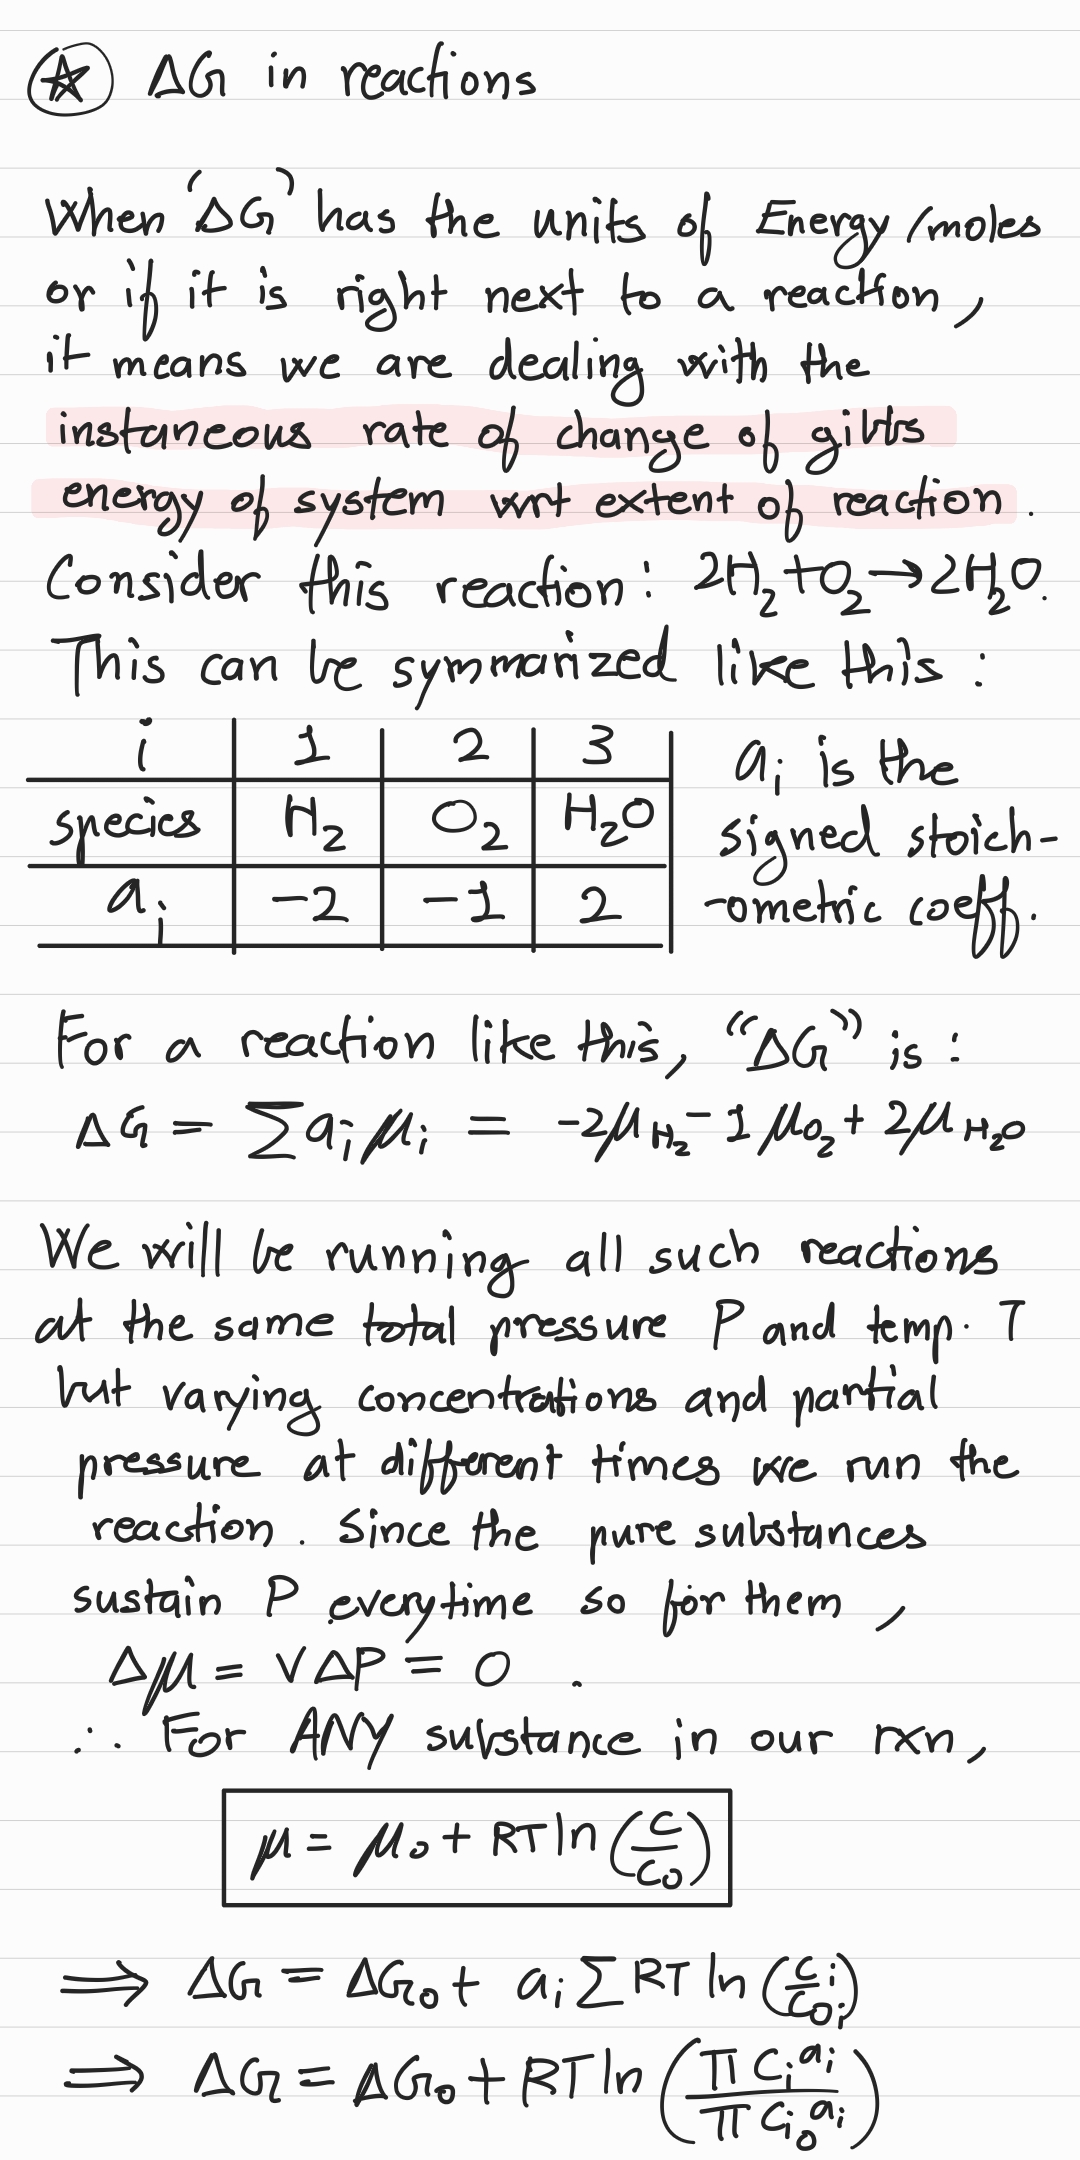 ΔG in reactions
When "ΔG" has the units of Energy/moles
or if it is right next to a reaction,
it means we are dealing with the
instaneous rate of change of gibbs
energy of system wrt extent of reaction.
Consider this reaction: 2H₂+O₂→2H₂O.
This can be symmarized like this:
i 1 2 3
species H₂ O₂ H₂O
aᵢ -2 -1 2
aᵢ is the
signed stoich-
-ometric coeff.
For a reaction like this, "ΔG" is:
ΔG = Σaᵢμᵢ = -2μ_H₂ - 1μ_O₂ + 2μ_H₂O
We will be running all such reactions
at the same total pressure P and temp. T
but varying concentrations and partial
pressure at different times we run the
reaction. Since the pure substances
sustain P everytime so for them,
Δμ = VΔP = 0.
∴ For ANY substance in our rxn,
μ = μ₀ + RT ln(C/C₀)
⇒ ΔG = ΔG₀ + aᵢ Σ RT ln(Cᵢ/C₀ᵢ)
⇒ ΔG = ΔG₀ + RT ln(Π Cᵢ^aᵢ / Π Cᵢ₀^aᵢ)